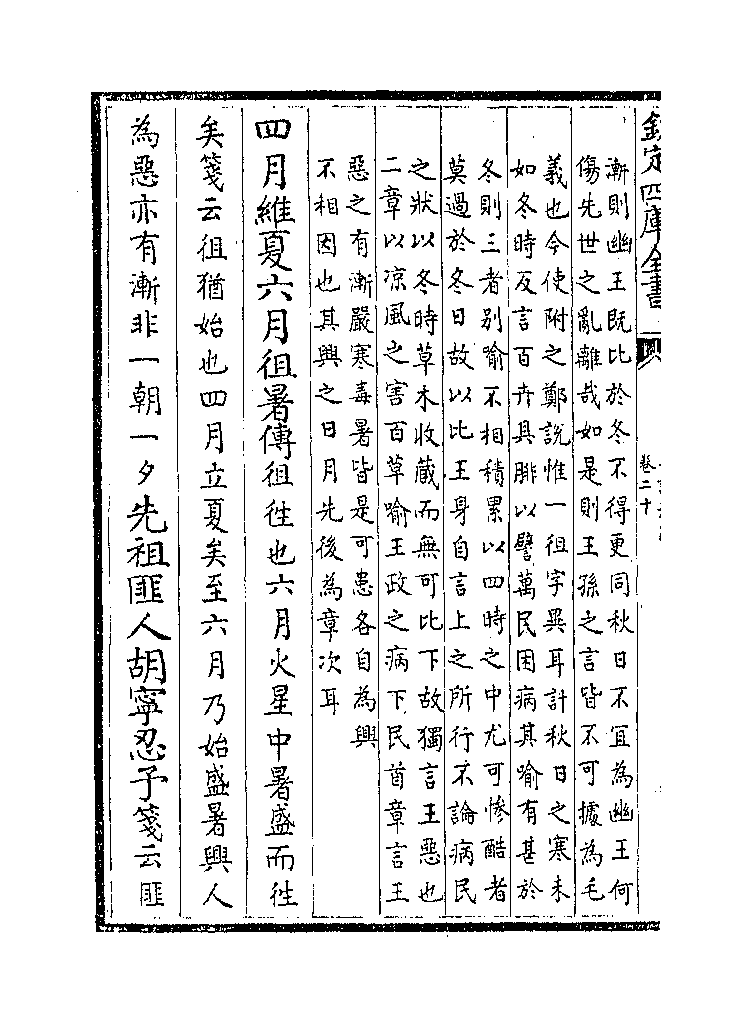 欽定四庫全書
卷二十
漸則幽王既比於冬不得更同秋日不宜為幽王何
傷先世之亂離哉如是則王孫之言皆不可據為毛
義也今使附之鄭說惟一徂字異耳計秋日之寒未
如冬時反言百卉具腓以譬萬民困病其喻有甚於
冬則三者別喻不相積累以四時之中尤可慘酷者
莫過於冬日故以比王身自言上之所行不論病民
之狀以冬時草木收藏而無可比下故獨言王惡也
二章以凉風之害百草喻王政之病下民首章言王
惡之有漸嚴寒毒暑皆是可患各自為興
不相因也其興之日月先後為章次耳
四月維夏六月徂暑傳徂徃也六月火星中暑盛而徃
矣箋云徂猶始也四月立夏矣至六月乃始盛暑興人
為惡亦有漸非一朝一夕先祖匪人胡寧忍予箋云匪